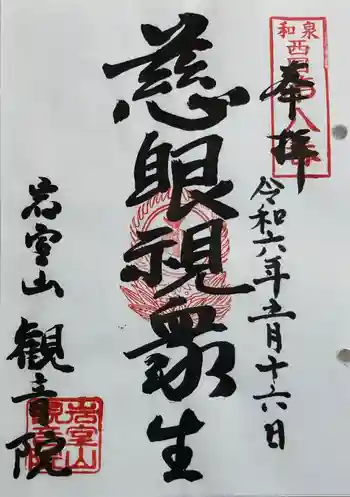 奉拝
令和六年五月十六日
慈眼視衆生
岩室山
観音院
和泉
西国
岩室山
観音院